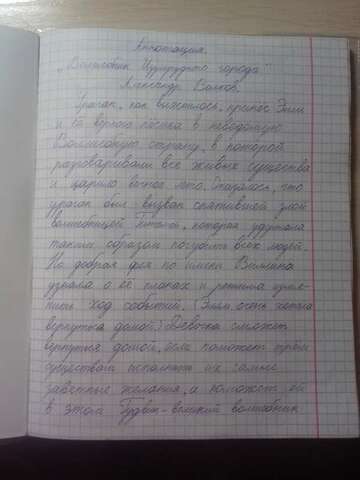 Аннотация.
"Волшебник Изумрудного города"
Александр Волков.
Ураган, как выяснилось, принёс Элли
и её верного пёсика в неведомую
Волшебную страну, в которой
разговаривали все живые существа
и царило вечное лето. Оказалось, что
ураган был вызван спятившей злой
волшебницей Гингемой, которая удумала
таким образом погубить всех людей.
Но добрая фея по имени Виллина
узнала о её планах и решила изме-
нить ход событий. (Элли очень хотела
вернуться домой.) Девочка сможет
вернуться домой, если поможет трём
существам исполнить их самые
заветные желания, а поможет ей
в этом Гудвин - великий волшебник